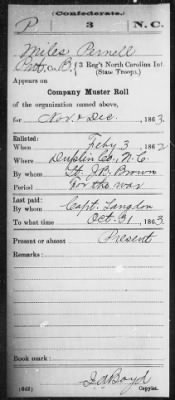 (Confederate.)
P 3 N. C.
Miles Pernell
Pvt, Co. B, 3 Reg't North Carolina Inf.
(State Troops.)
Appears on
Company Muster Roll
of the organization named above,
for Nov. & Dec., 1863
Enlisted:
When Feby 3 1862
Where Duplin Co., N. C.
By whom Lt. J. B. Brown
Period For the war
Last paid:
By whom Capt. Langdon
To what time Oct. 31 1863
Present or absent Present
Remarks:
Book mark:
(642) J. A. Boyd
Copyist.